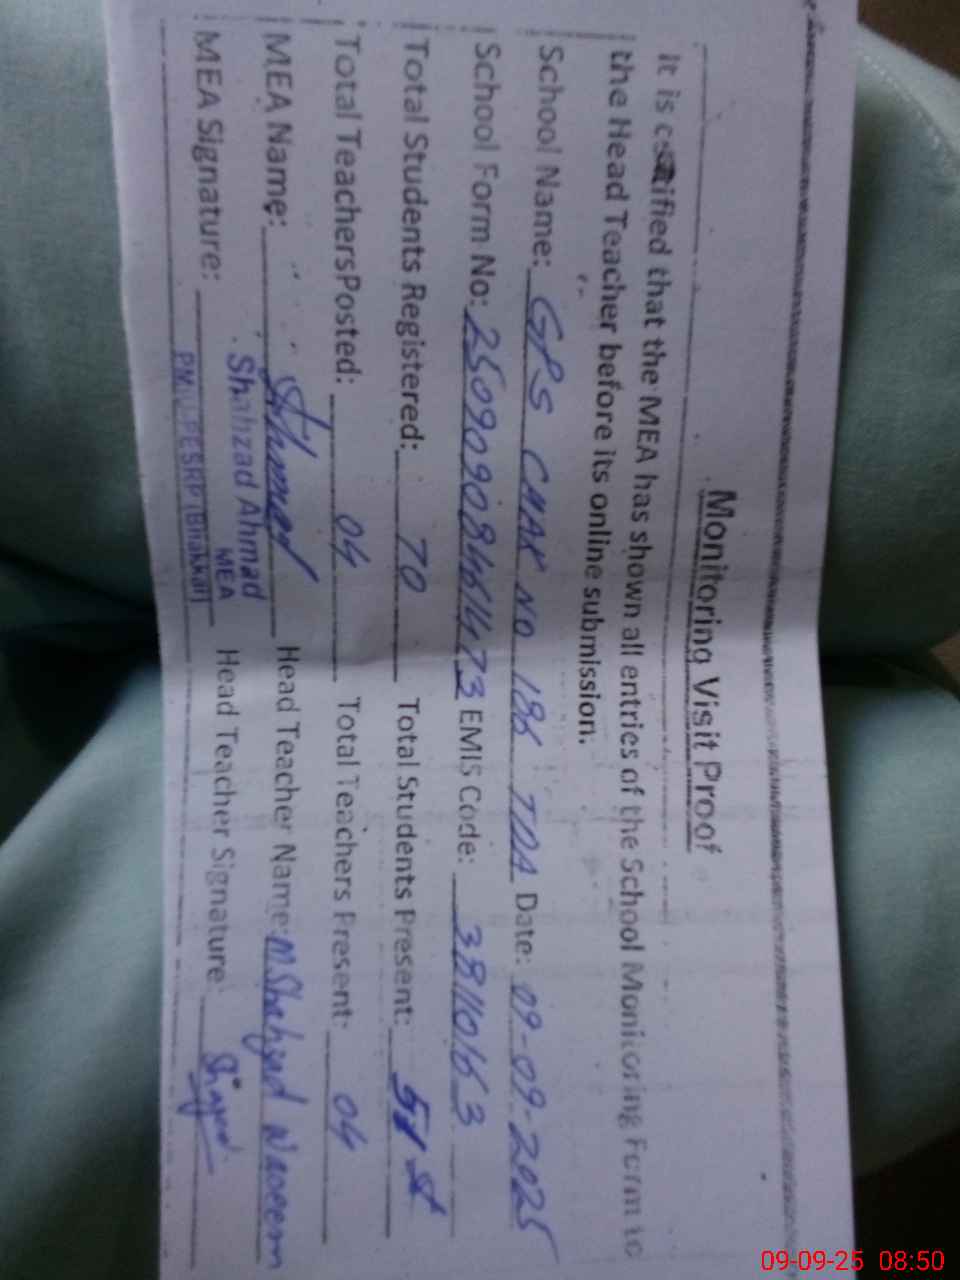 Monitoring Visit Proof
It is certified that the MEA has shown all entries of the School Monitoring Form to
the Head Teacher before its online submission.
School Name: GPS CHAK NO 186 TDA Date: 09-09-2025
School Form No: EMIS Code: 38110163
Total Students Registered: 70 Total Students Present:
Total TeachersPosted: 04 Total Teachers Present: 04
MEA Name: Head Teacher Name: M Shahzad Naeem
Shahzad Ahmad
MEA
MEA Signature: PMIU PESRP (Bhakkar) Head Teacher Signature
09-09-25 08:50